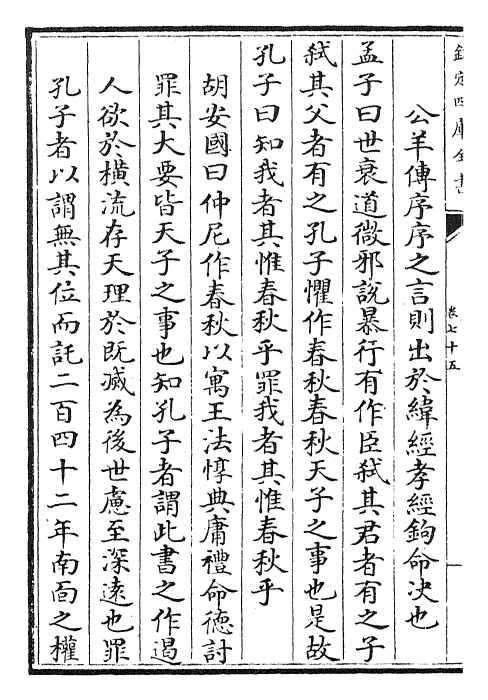 欽定四庫全書
卷七十五
公羊傳序序之言則出於緯經孝經鉤命決也
孟子曰世衰道微邪說暴行有作臣弒其君者有之子
弒其父者有之孔子懼作春秋春秋天子之事也是故
孔子曰知我者其惟春秋乎罪我者其惟春秋乎
胡安國曰仲尼作春秋以寓王法惇典庸禮命德討
罪其大要皆天子之事也知孔子者謂此書之作遏
人欲於橫流存天理於既滅為後世慮至深遠也罪
孔子者以謂無其位而託二百四十二年南面之權